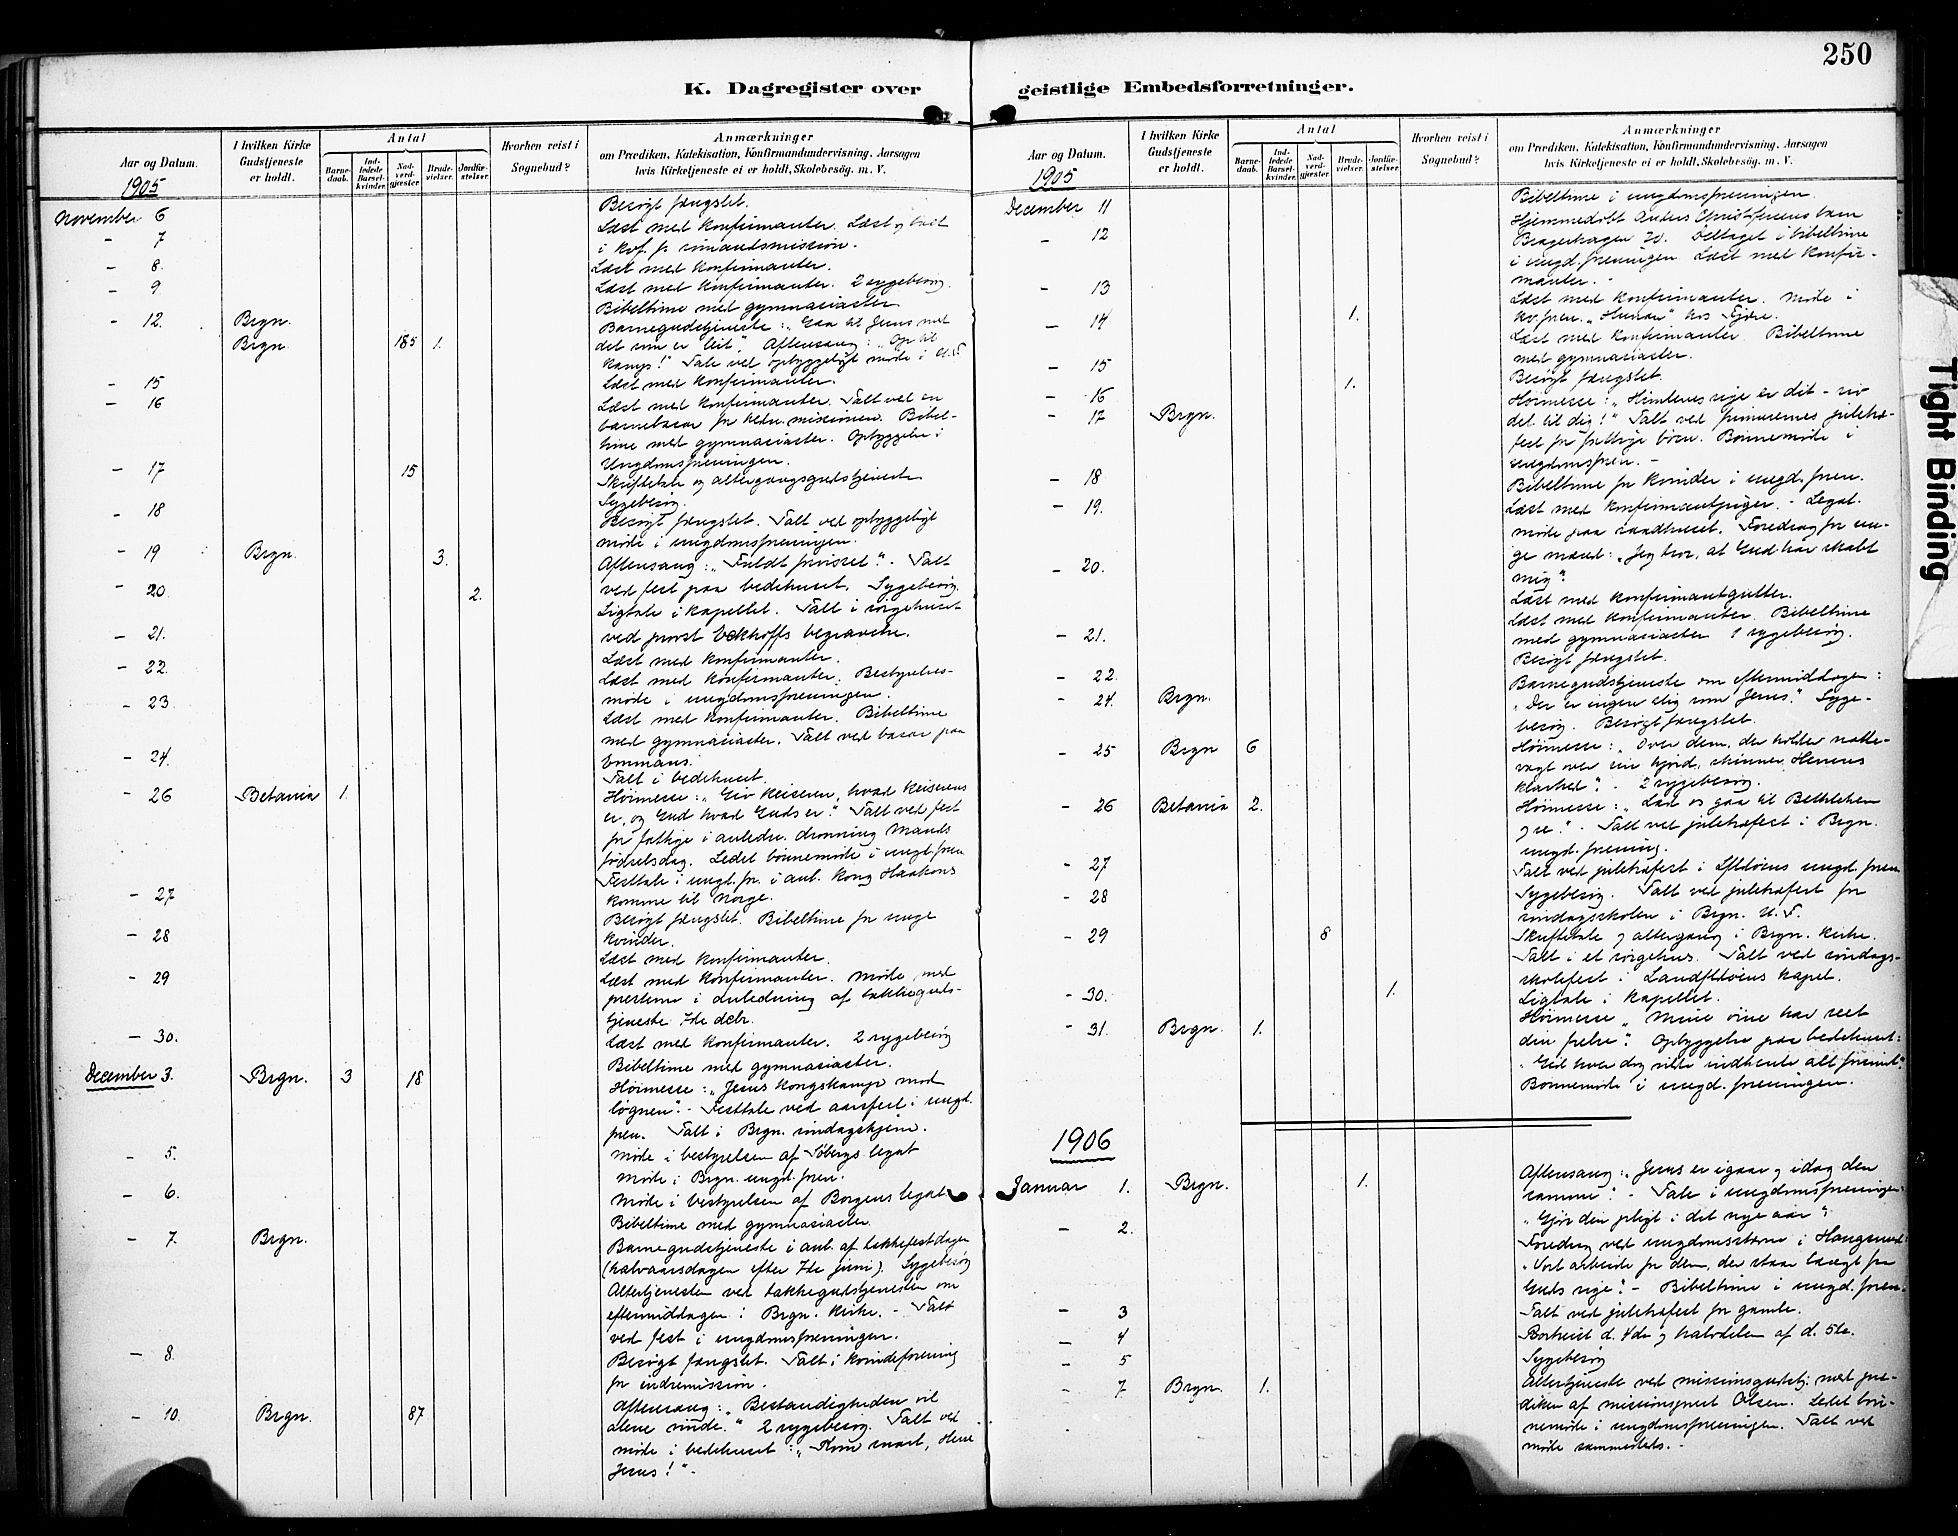 250
K. Dagregister over geistlige Embedsforretninger.
Aar og Datum.
I hvilken Kirke Gudstjeneste er holdt.
Antal
Barne-daab.
Ind-ledede Barsel-kvinder.
Nad-verd-gjester.
Brude-vielser.
Jordfæ-stelser.
Hvorhen reist i Sognebud?
Anmærkninger
om Prædiken, Katekisation, Konfirmandundervisning, Aarsagen
hvis Kirketjeneste ei er holdt, Skolebesög. m. V.
1905
November 6 Besøgt fængslet.
- 7 Læst med konfirmanter. Læst og bedt
i kvf. for sømandsmission.
- 8. Læst med konfirmanter.
- 9 Læst med konfirmanter. 2 sygebesøg.
Bibeltime med gymnasiaster
- 12. Brgn. Barnegudstjeneste: "Gaa til Jesus med
Brgn. 185 1. det som er leit". Aftensang: "Op til
kamp!" Tale ved opbyggeligt møde i U.F.
- 15 Læst med konfirmanter.
- 16 Læst med konfirmanter. Talt ved en
barnebasar for hedn. missionen. Bibel-
time med gymnasiaster. Opbyggelse i
Ungdomsforeningen.
- 17 15 Skriftetale og altergangsgudstjeneste
Sygebesøg.
- 18 Besøgt fængslet. Talt ved opbyggeligt
møde i ungdomsforeningen.
- 19 Brgn. 3. Aftensang: "Fuldt forvisset". - Talt
ved fest paa bedehuset. Sygebesøg.
- 20 2. Ligtale i kapellet. Talt i sørgehuset
ved provst Eckhoffs begravelse.
- 21. Læst med konfirmanter.
- 22. Læst med konfirmanter. Bestyrelses-
møde i ungdomsforeningen.
- 23 Læst med konfirmanter. Bibeltime
med gymnasiaster. Talt ved basar paa
Emmaus.
- 24. Talt i bedehuset.
- 26 Betania 1. Høimesse: "Giv keiseren, hvad keiserens
er, og Gud hvad Guds er". Talt ved fest
for fattige i anledn. dronning Mauds
fødselsdag. Ledet bønnemøde i ungd. foren
Festtale i ungd. fr. i anl. kong Haakons
komme til Norge.
- 27 Besøgt fængslet. Bibeltime for unge
kvinder.
- 28 Læst med konfirmanter.
- 29 Læst med konfirmanter. Møde med
presterne i anledning af takkeguds-
tjeneste 7de decbr.
- 30. Læst med konfirmanter. 2 sygebesøg
Bibeltime med gymnasiaster.
December 3. Brgn. 3 18 Høimesse: "Jesus kongskamp mod
løgnen". - Festtale ved aarsfest i ungd.
foren. Talt i Brgn. søndagshjem.
- 5. Møde i bestyrelsen af Søbergs legat
Møde i Brgn. ungd. foren.
- 6. Møde i bestyrelsen af Borgens legat
Bibeltime med gymnasiaster.
- 7. Brgn. Barnegudstjeneste i anl. af takkefestdagen
(halvaarsdagen efter 7de juni). Sygebesøg
Altertjenesten ved takkegudstjenesten om
eftermiddagen i Brgn. kirke. - Talt
ved fest i ungdomsforeningen.
- 8. Besøgt fængslet. Talt i kvindeforening
for indremission.
- 10. Brgn. 87 Aftensang: "Bestandigheden vil
alene vinde." 2 sygebesøg. Talt ved
møde i bedehuset: "Kom snart, Herre
Jesus!" -
Aar og Datum.
I hvilken Kirke Gudstjeneste er holdt.
Antal
Barne-daab.
Ind-ledede Barsel-kvinder.
Nad-verd-gjester.
Brude-vielser.
Jordfæ-stelser.
Hvorhen reist i Sognebud?
Anmærkninger
om Prædiken, Katekisation, Konfirmandundervisning, Aarsagen
hvis Kirketjeneste ei er holdt, Skolebesög. m. V.
1905
December 11 Bibeltime i ungdomsforeningen.
- 12 Hjemmedøbt Anders Christophersens barn
Bragerhagen 20. Deltaget i bibeltime
i ungd. foreningen. Læst med konfir-
manter. -
- 13 Læst med konfirmanter. Møde i
- 14 1. Læst med konfirmanter. Bibeltime
med gymnasiaster.
- 15 Besøgt fængslet.
- 16 1.
- 17 Brgn. Høimesse: "Himlenes rige er dit - riv
det til dig!" Talt ved juletræ-
fest for fattige børn. Bønnemøde i
ungdomsforen. -
- 18 Bibeltime for kvinder i ungd. foren.
- 19. Læst med konfirmantpiger. - Legat-
møde paa raadhuset. Foredrag for un-
ge mænd: "Jeg tror, at Gud har skabt
mig".
- 20. Læst med konfirmantgutter.
- 21. Læst med konfirmanter. Bibeltime
med gymnasiaster 1 sygebesøg.
- 22. Besøgt fængslet.
- 24. Brgn. Barnegudstjeneste om eftermiddagen:
"Der er ingen slig som Jesus". Syge-
besøg. Besøgt fængslet.
- 25 Brgn 6 Høimesse: "Over dem, der holder natte-
vagt over sin hjord, skinner Herrens
klarhed". - 2 sygebesøg.
- 26 Betania 2. Høimesse: "Lad os gaa til Bethlehem
og se". - Talt ved juletræfest i Brgn.
ungd. forening.
- 27 Talt ved juletræfest i ungd. foren
- 28 Sygebesøg. Talt ved juletræfest for
søndagsskolen i Brgn. U.F.
- 29 8 Skriftetale og altergang i Brgn. kirke.
Talt i et sørgehus. Talt ved søndags-
skolefest i Landfaldøens kapel.
- 30. 1. Ligtale i kapellet.
- 31. Brgn. 1. Høimesse "Mine øine har seet
din frelse". Opbyggelse paa bedehuset:
Bønnemøde i ungd. foreningen.
1906
Januar 1. Brgn. 1. Aftensang: "Jesus er igaar og idag den
samme". - Tale i ungdomsforeningen:
"Gjør din pligt i det nye aar".
- 2. Foredrag ved ungdomsstævne i Hougsund:
"Vort arbeide for dem, der staar langt fra
Guds rige". - Bibeltime i ungd. foren.
- 3 Talt ved juletræfest for gamle.
- 4 Bortreist d. 4de og halvdelen af d. 5te.
- 5 Sygebesøg
- 7. Brgn. 1. Altertjeneste ved missionsgudstj. med præ-
diken af missionsprest Olsen. Ledet bøn-
nemøde i ungdomsforeningen. Talt ved
møde sammesteds. -
Tight Binding